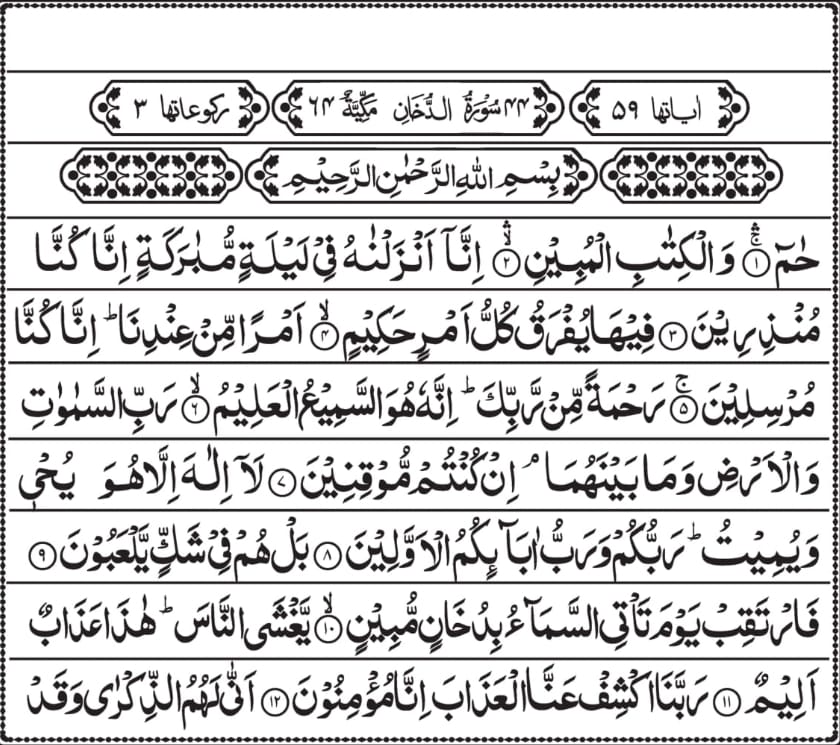 اٰیاتها ۵۹ ۴۴ سُوْرَةُ الدُّخَانِ مَكِّيَّةٌ ۶۴ ركوعاتها ۳
بِسْمِ اللهِ الرَّحْمٰنِ الرَّحِيْمِ
حٰمٓ ۚۛ۝۱ وَالْكِتٰبِ الْمُبِيْنِ ۙۛ۝۲ اِنَّاۤ اَنْزَلْنٰهُ فِيْ لَيْلَةٍ مُّبٰرَكَةٍ اِنَّا كُنَّا
مُنْذِرِيْنَ ۝۳ فِيْهَا يُفْرَقُ كُلُّ اَمْرٍ حَكِيْمٍ ۙ۝۴ اَمْرًا مِّنْ عِنْدِنَا ؕ اِنَّا كُنَّا
مُرْسِلِيْنَ ۚ۝۵ رَحْمَةً مِّنْ رَّبِّكَ ؕ اِنَّهٗ هُوَ السَّمِيْعُ الْعَلِيْمُ ۙ۝۶ رَبِّ السَّمٰوٰتِ
وَالْاَرْضِ وَمَا بَيْنَهُمَا ۘ اِنْ كُنْتُمْ مُّوْقِنِيْنَ ۝۷ لَاۤ اِلٰهَ اِلَّا هُوَ يُحْيٖ
وَيُمِيْتُ ؕ رَبُّكُمْ وَرَبُّ اٰبَآئِكُمُ الْاَوَّلِيْنَ ۝۸ بَلْ هُمْ فِيْ شَكٍّ يَّلْعَبُوْنَ ۝۹
فَارْتَقِبْ يَوْمَ تَاْتِي السَّمَآءُ بِدُخَانٍ مُّبِيْنٍ ۙ۝۱۰ يَّغْشَى النَّاسَ ؕ هٰذَا عَذَابٌ
اَلِيْمٌ ۝۱۱ رَبَّنَا اكْشِفْ عَنَّا الْعَذَابَ اِنَّا مُؤْمِنُوْنَ ۝۱۲ اَنّٰى لَهُمُ الذِّكْرٰى وَقَدْ